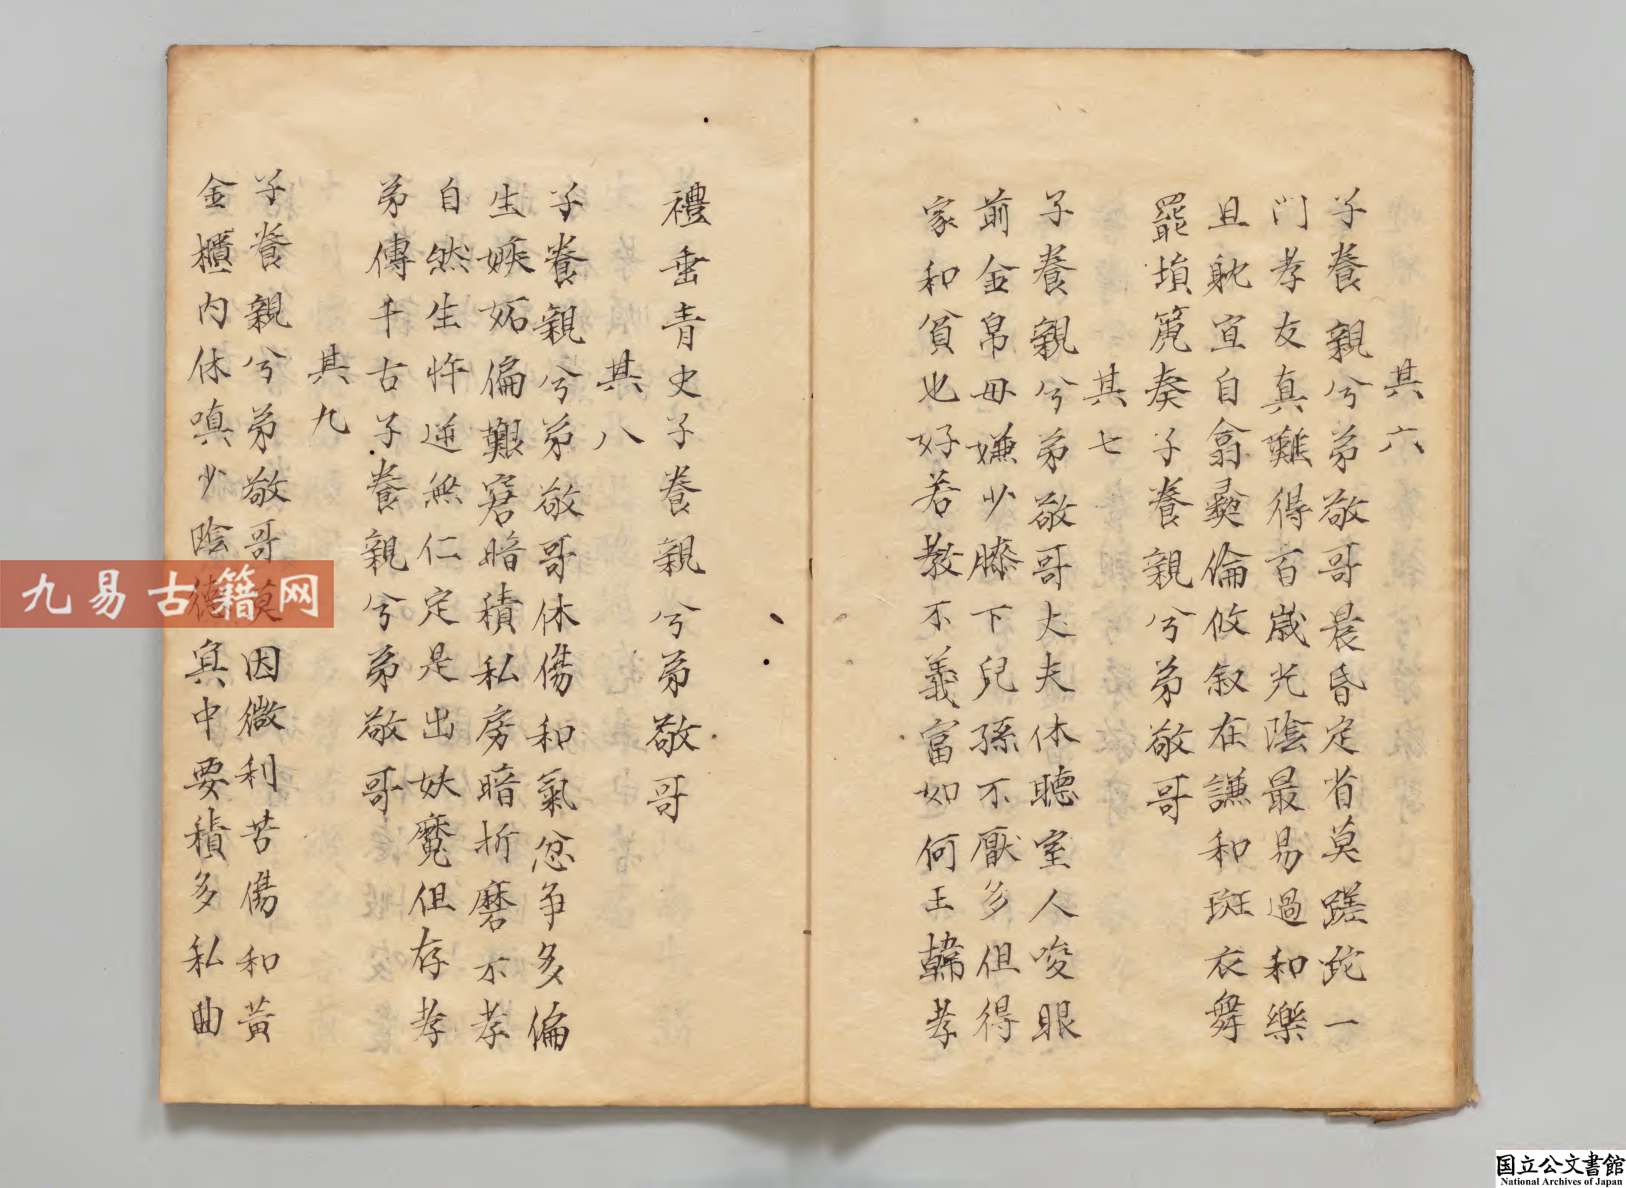 其六
子養親兮弟敬哥晨昏定省莫蹉跎一
門孝友真難得百歲光陰最易過和樂
且耽宜自翕彛倫攸叙在謙和斑衣舞
罷塤篪奏子養親兮弟敬哥
其七
子養親兮弟敬哥大夫休聽室人唆眼
前金帛毋嫌少膝下兒孫不厭多但得
家和貧也好若教不義富如何王韓孝
禮垂青史子養親兮弟敬哥
其八
子養親兮弟敬哥休傷和氣忿争多偏
生嫉妬偏艱窘暗積私房暗折磨不孝
自然生忤逆無仁定是出妖魔但存孝
弟傳千古子養親兮弟敬哥
其九
子養親兮弟敬哥莫因微利苦傷和黃
金櫃內休嗔少陰德冥中要積多私曲
九易古籍网
国立公文書館
National Archives of Japan